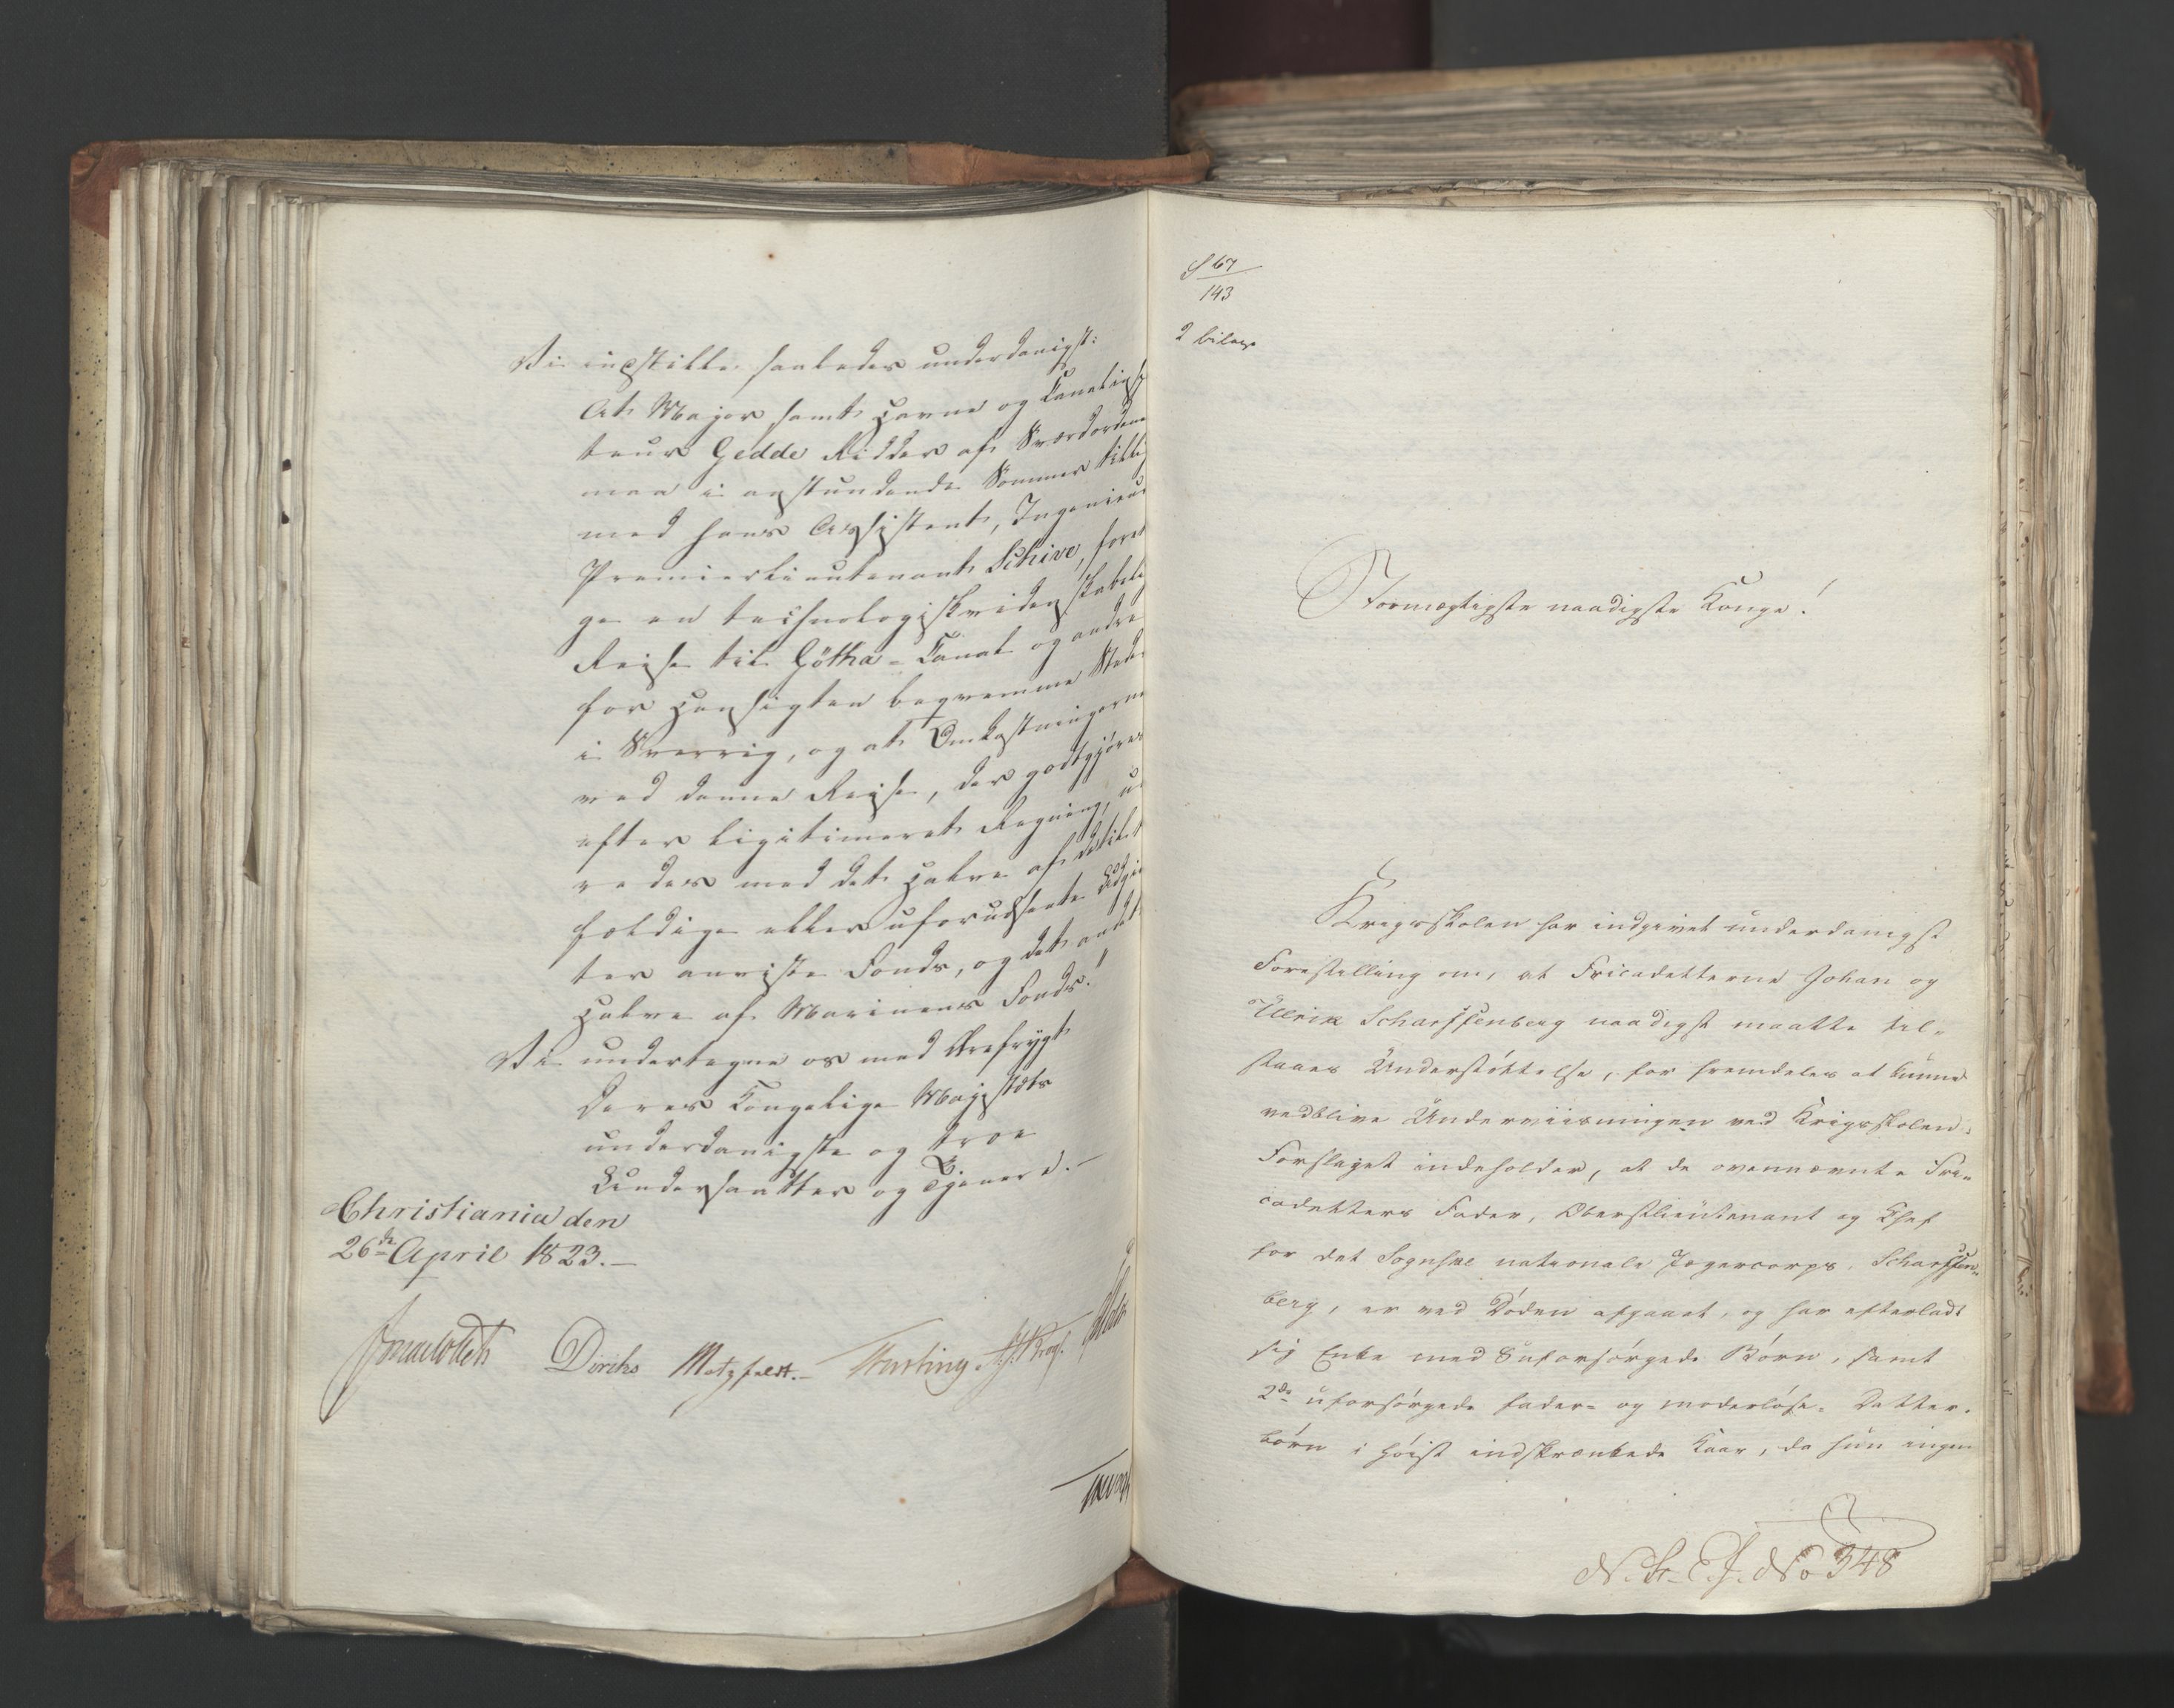 Vi indstille saaledes underdanigst:
At Major samt Havne og Canalinspec
teur Gedde Ridder af Sværdordenen
maa i anstundende Sommer tillige
med hans Assistent, Ingenieur
Premierlieutenant Schive, foreta
ge en technologiskvidenskabelig
Reise til Götha-Canal og andre
for Hensigten beqvemme Steder
i Sverrig, og at Omkostningerne
ved denne Reise, der godtgjøres
efter legitimeret Regning, ud
redes med det Halve af det til
fældige eller uforudseete Udgif
ter anviste Fonds, og det andet
Halve af Marinens Fonds."
Vi undertegne os med Ærefrygt
Deres Kongelige Majestæts
underdanigste og troe
Undersaatter og Tjenere.—
Christiania den
26de April 1823.—
Diriks Motzfeldt.—
S 67
143
2 bilage
Stormægtigste naadigste Konge!
Krigsskolen har indgivet underdanigst
Forestilling om, at Fricadetterne Johan og
Ulrik Scharffenberg naadigst maatte til-
staaes Understøttelse, for fremdeles at kunne
vedblive Underviisningen ved Krigsskolen.
Forslaget indeholder, at de ovennævnte Fri-
cadetters Fader, Oberstlieutenant og Chef
for det Sognske nationale Jægercorps, Scharffen-
berg, er ved Døden afgaaet, og har efterladt
sig Enke med 8 uforsørgede Børn, samt
2de uforsørgede fader- og moderløse Datter-
børn i høist indskrænkede Kaar, da hun ingen
No 348